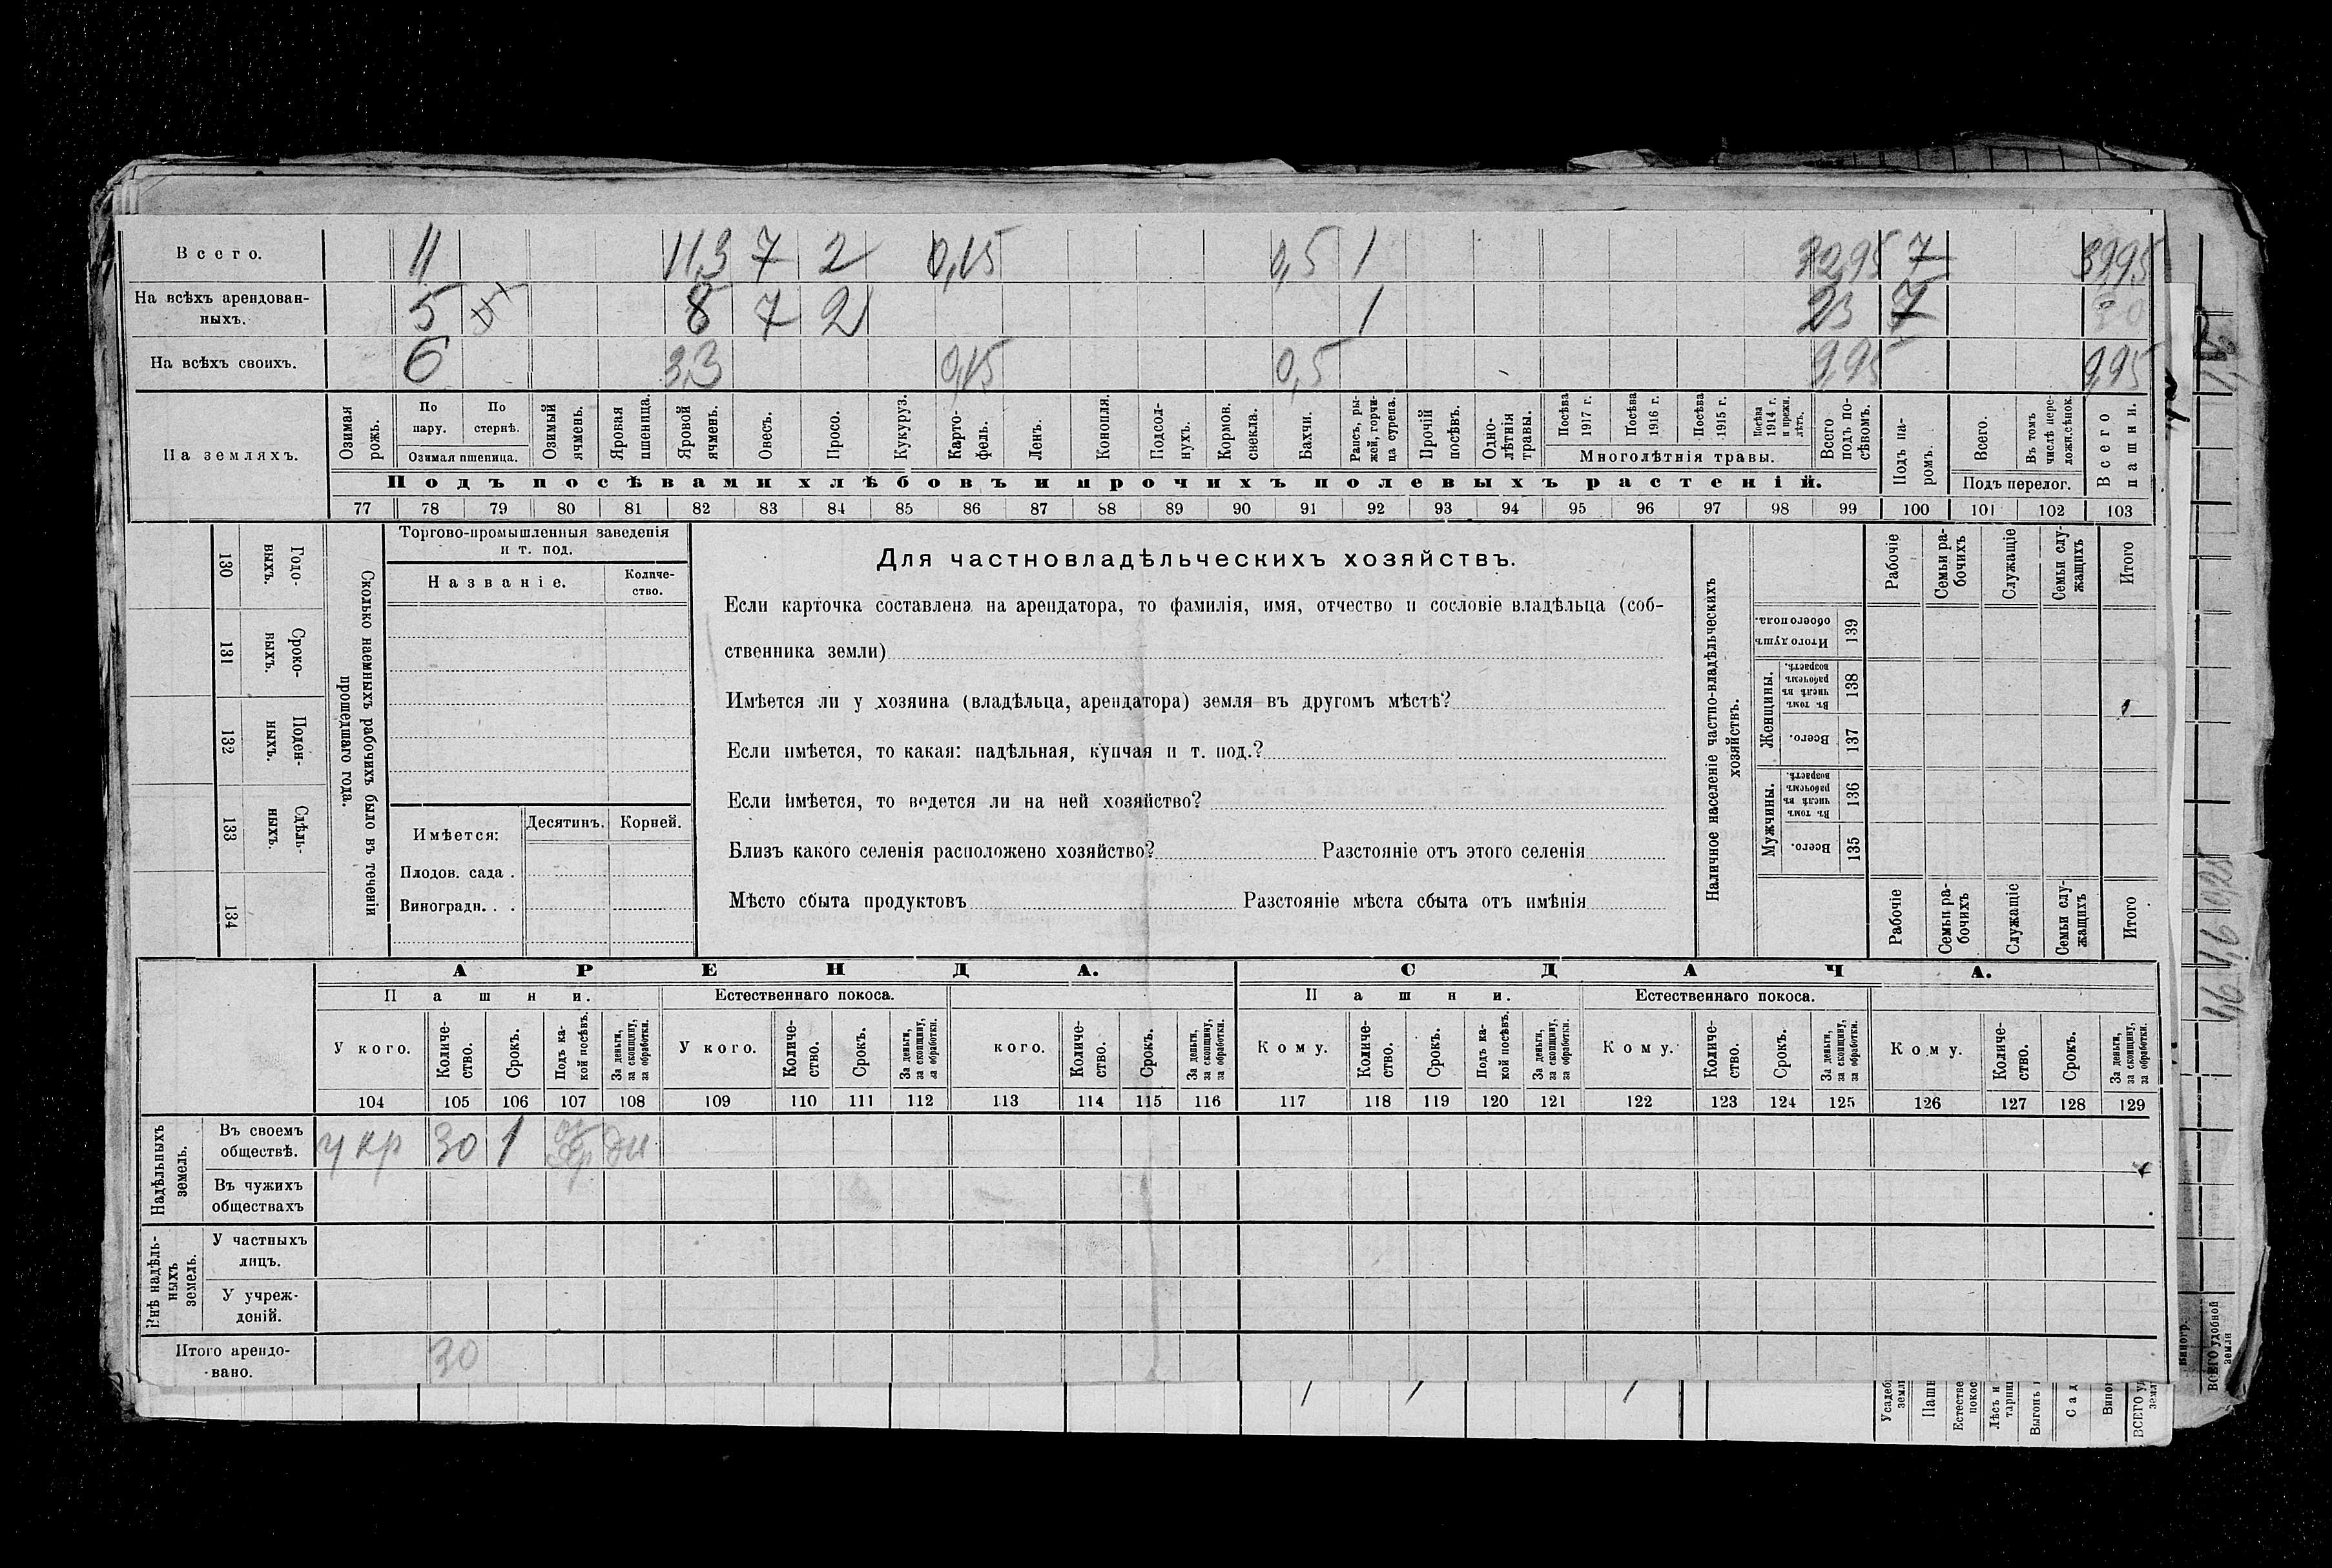 Всего. 11 11,3 7 2 0,15 0,5 1 32,95 7 39,95
На всѣхъ арендован-
ныхъ. 5 8 7 2 1 23 7 30
На всѣхъ своихъ. 6 3,3 0,15 0,5 9,95 9,95
На земляхъ.
Озимая рожь.
По пару.
По стернѣ.
Озимая пшеница.
Озимый ячмень.
Яровая пшеница.
Яровой ячмень.
Овесъ.
Просо.
Кукуруз.
Карто-
фель.
Ленъ.
Конопля.
Подсол-
нухъ.
Кормов. свекла.
Бахчи.
Рапсъ, ры-
жей, горчи-
ца сурепа.
Прочій посѣвъ.
Одно-
лѣтнія травы.
Посѣва 1917 г.
Посѣва 1916 г.
Посѣва 1915 г.
Посѣва 1914 г. и прежн. лѣтъ.
Многолѣтнія травы.
Всего подъ по-
сѣвомъ.
Подъ па-
ромъ.
Всего.
Въ томъ числѣ пере-
ложн. сѣнок.
Подъ перелог.
Всего пашни.
Подъ посѣвами хлѣбовъ и прочихъ полевыхъ растеній.
77 78 79 80 81 82 83 84 85 86 87 88 89 90 91 92 93 94 95 96 97 98 99 100 101 102 103
130 Годо-
выхъ.
131 Сроко-
выхъ.
132 Поден-
ныхъ.
133 Сдѣль-
ныхъ.
134
Сколько наемныхъ рабочихъ было въ теченіи
прошедшаго года.
Торгово-промышленныя заведенія
и т. под.
Названіе.
Количе-
ство.
Имѣется:
Десятинъ.
Корней.
Плодов. сада .
Виноградн. . .
Для частновладѣльческихъ хозяйствъ.
Если карточка составлена на арендатора, то фамилія, имя, отчество и сословіе владѣльца (соб-
ственника земли)
Имѣется ли у хозяина (владѣльца, арендатора) земля въ другомъ мѣстѣ?
Если имѣется, то какая: надѣльная, купчая и т. под.?
Если имѣется, то ведется ли на ней хозяйство?
Близъ какого селенія расположено хозяйство? Разстояніе отъ этого селенія
Мѣсто сбыта продуктовъ Разстояніе мѣста сбыта отъ имѣнія
Наличное населеніе частно-владѣльческихъ
хозяйствъ.
Рабочіе
Семьи ра-
бочихъ
Служащіе
Семьи слу-
жащихъ
Итого
Итого душъ обоего пола. 139
Женщины.
Въ томъ числѣ въ рабочемъ возрастѣ. 138
Всего. 137
Мужчины.
Въ томъ числѣ въ рабочемъ возрастѣ. 136
Всего. 135
Рабочіе
Семьи ра-
бочихъ
Служащіе
Семьи слу-
жащихъ
Итого
АРЕНДА. СДАЧА.
Пашни. Естественнаго покоса. Пашни. Естественнаго покоса.
У кого.
Количе-
ство.
Срокъ.
Подъ ка-
кой посѣвъ.
За деньги,
за скопщину,
за обработки.
У кого.
Количе-
ство.
Срокъ.
За деньги,
за скопщину,
за обработки.
кого.
Количе-
ство.
Срокъ.
За деньги,
за скопщину,
за обработки.
Кому.
Количе-
ство.
Срокъ.
Подъ ка-
кой посѣвъ.
За деньги,
за скопщину,
за обработки.
Кому.
Количе-
ство.
Срокъ.
За деньги,
за скопщину,
за обработки.
Кому.
Количе-
ство.
Срокъ.
За деньги,
за скопщину,
за обработки.
104 105 106 107 108 109 110 111 112 113 114 115 116 117 118 119 120 121 122 123 124 125 126 127 128 129
Надѣльныхъ
земель.
Въ своемъ
обществѣ. у кр 30 1 ды
Въ чужихъ
обществахъ
Внѣ надѣль-
ныхъ
земель.
У частныхъ
лицъ.
У учреж-
деній.
Итого арендо-
вано. 30
Усадеб
земл
Пашн
Естестве
покос
Лѣсъ и
тарни
Выгонъ
Сад
Вино
ВСЕГО у
зем
Виногр.
ВСЕГО удобной
земли